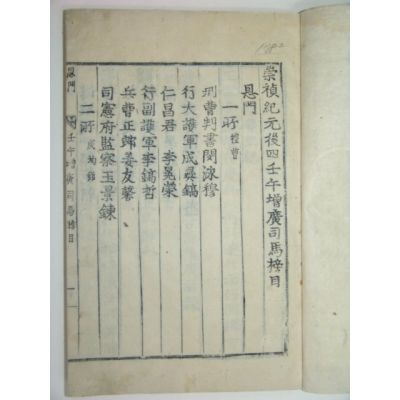 崇禎紀元後四壬午增廣司馬榜目
恩門
一所 禮曹
刑曹判書閔泳穆
行大護軍成彛鎬
仁昌君 李晃榮
行副護軍李鎬哲
兵曹正郞姜友馨
司憲府監察玉景鍊
二所 成均館
恩門 壬午增廣司馬榜目 一